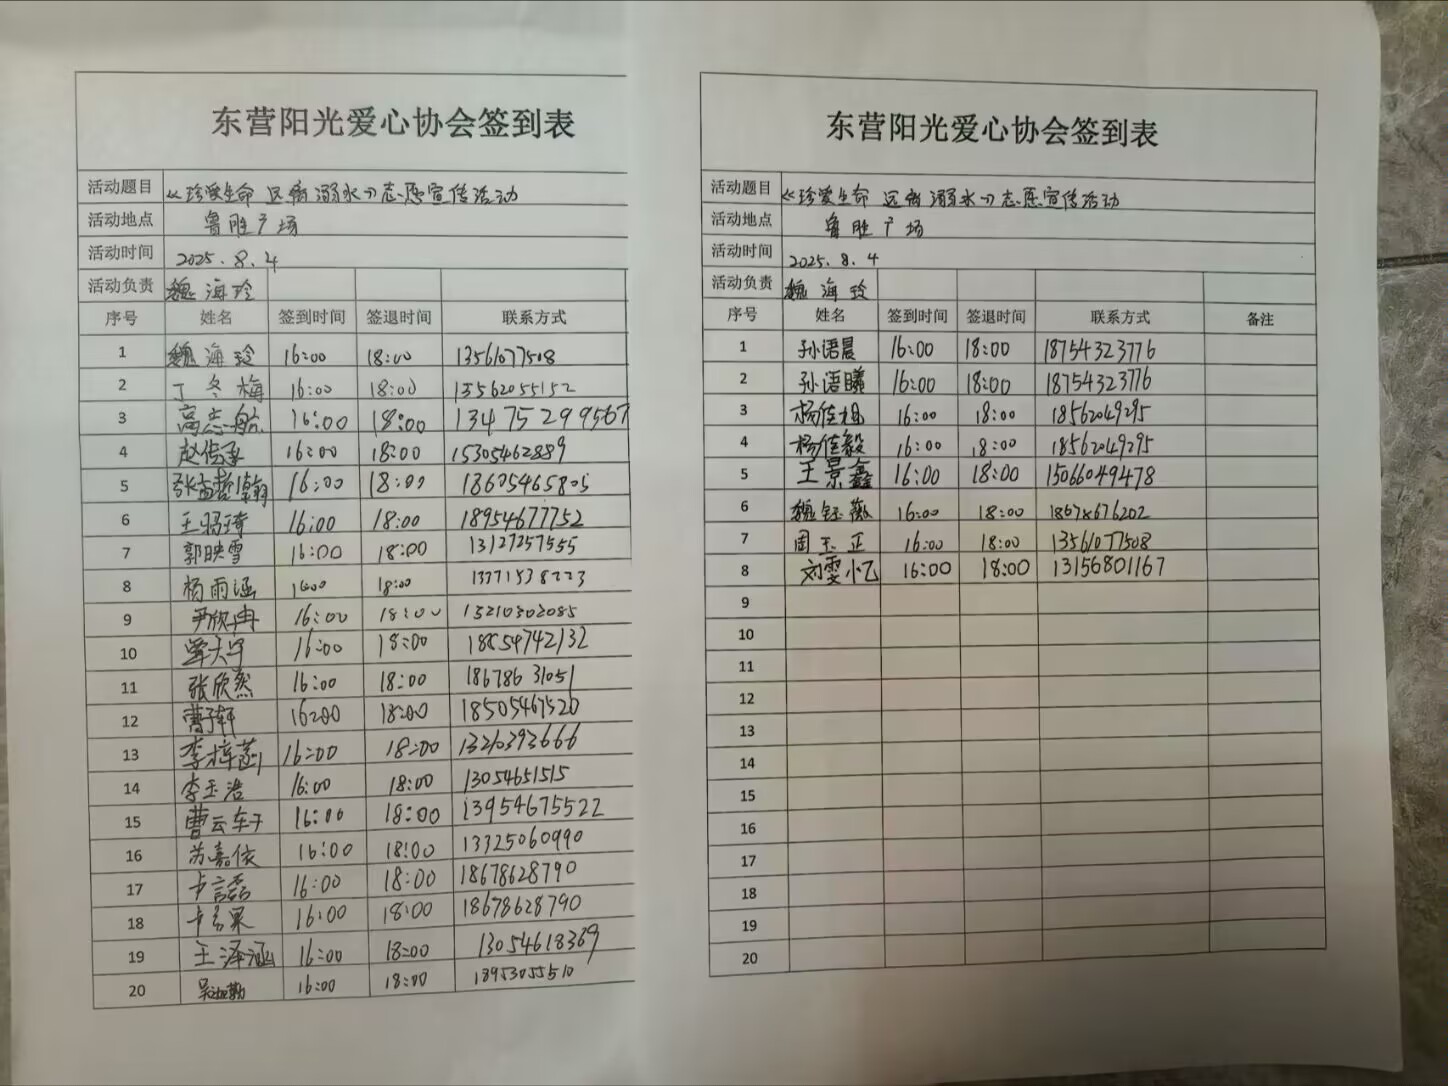 东营阳光爱心协会签到表
活动题目 《珍爱生命 远离溺水》志愿宣传活动
活动地点 鲁胜广场
活动时间 2025.8.4
活动负责 魏海玲
序号 姓名 签到时间 签退时间 联系方式
1 魏海玲 16:00 18:00 13561077508
2 丁冬梅 16:00 18:00 13562055152
3 高志航 16:00 18:00 13475299567
4 赵传承 16:00 18:00 15305462889
5 张益哲瀚 16:00 18:00 18605465805
6 16:00 18:00 18954677752
7 郭映雪 16:00 18:00 13127257555
8 杨雨涵 16:00 18:00
9 尹欣冉 16:00 18:00 13210302085
10 16:00 18:00 18854742132
11 张欣然 16:00 18:00 18678631051
12 曹子轩 16:00 18:00 18505467520
13 李梓菡 16:00 18:00 13210393666
14 李玉浩 16:00 18:00 13054651515
15 曹云轩 16:00 18:00 13954675522
16 苏嘉依 16:00 18:00 13325060990
17 16:00 18:00 18678628790
18 16:00 18:00 18678628790
19 王泽涵 16:00 18:00 13054618369
20 16:00 18:00 18953055510
东营阳光爱心协会签到表
活动题目 《珍爱生命 远离溺水》志愿宣传活动
活动地点 鲁胜广场
活动时间 2025.8.4
活动负责 魏海玲
序号 姓名 签到时间 签退时间 联系方式 备注
1 孙语晨 16:00 18:00 18754323776
2 孙语曦 16:00 18:00 18754323776
3 16:00 18:00 18562049295
4 杨佳毅 16:00 18:00 18562049295
5 王景鑫 16:00 18:00 15066049478
6 魏钰薇 16:00 18:00 18678676202
7 周玉正 16:00 18:00 13561077508
8 刘雯忆 16:00 18:00 13156801167
9
10
11
12
13
14
15
16
17
18
19
20